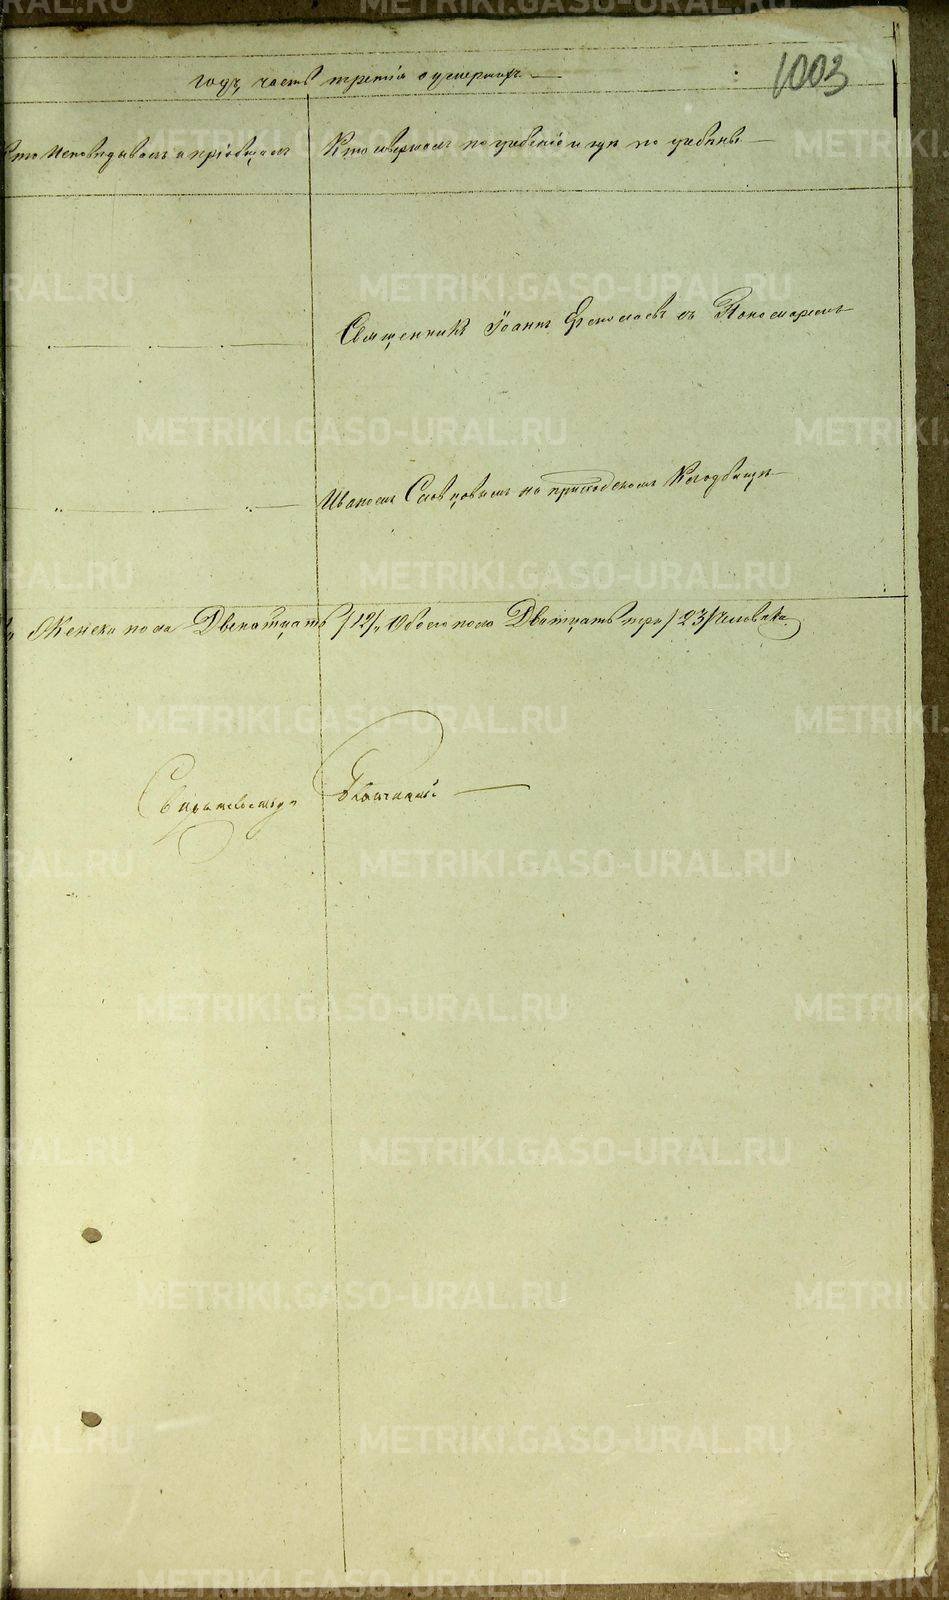 годъ, часть третія о умершихъ
1003
Кто исповѣдывалъ и пріобщалъ
Кто совершалъ погребеніе и гдѣ погребены
Священникъ Іоаннъ с Пономаремъ
Иваномъ Словцовымъ на приходскомъ Кладбищѣ
Женска пола Двенатцать /12/, Обоего пола Дватцать три /23/ человѣка.
METRIKI.GASO-URAL.RU